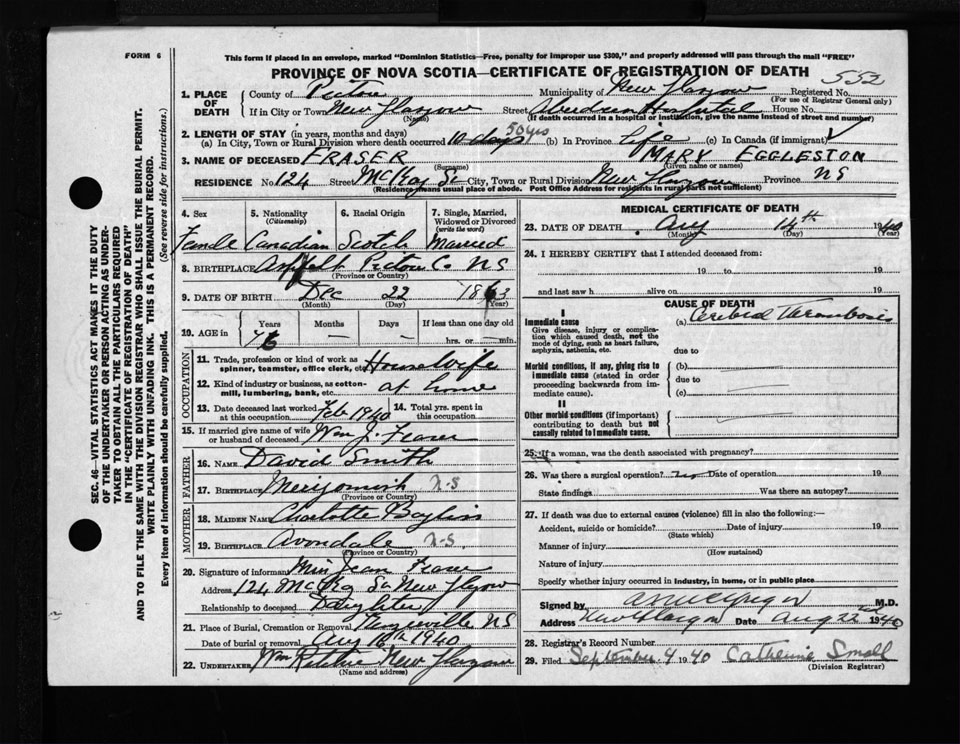 FORM 6
This form if placed in an envelope, marked "Dominion Statistics—Free, penalty for improper use $300," and properly addressed will pass through the mail "FREE"
PROVINCE OF NOVA SCOTIA—CERTIFICATE OF REGISTRATION OF DEATH
552
1. PLACE OF DEATH
County of Pictou Municipality of New Glasgow Registered No.
(For use of Registrar General only)
If in City or Town New Glasgow Street Aberdeen Hospital House No.
(Name) (If death occurred in a hospital or institution, give the name instead of street and number)
2. LENGTH OF STAY (in years, months and days)
(a) In City, Town or Rural Division where death occurred 10 days 50 yrs (b) In Province Life (c) In Canada (if immigrant)
3. NAME OF DECEASED FRASER MARY EGGLESTON
(Surname) (Given name or names)
RESIDENCE No. 124 Street McKay St City, Town or Rural Division New Glasgow Province NS
(Residence means usual place of abode. Post Office Address for residents in rural parts not sufficient)
4. Sex
Female
5. Nationality (Citizenship)
Canadian
6. Racial Origin
Scotch
7. Single, Married, Widowed or Divorced (write the word)
Married
8. BIRTHPLACE Pictou Co NS
(Province or Country)
9. DATE OF BIRTH Dec 22 1863
(Month) (Day) (Year)
10. AGE in Years Months Days If less than one day old
76 — — hrs. or min.
OCCUPATION
11. Trade, profession or kind of work as spinner, teamster, office clerk, etc. Housewife
12. Kind of industry or business, as cotton-mill, lumbering, bank, etc. at home
13. Date deceased last worked at this occupation Feb 1940 14. Total yrs. spent in this occupation
15. If married give name of wife or husband of deceased Wm J. Fraser
FATHER
16. NAME David Smith
17. BIRTHPLACE Merigomish N.S
(Province or Country)
MOTHER
18. MAIDEN NAME Charlotte
19. BIRTHPLACE Avondale N.S.
(Province or Country)
20. Signature of informant Miss Jean Fraser
Address 124 McKay St New Glasgow
Relationship to deceased Daughter
21. Place of Burial, Cremation or Removal NS
Date of burial or removal Aug 16th 1940
22. UNDERTAKER Wm Ritchie New Glasgow
(Name and address)
MEDICAL CERTIFICATE OF DEATH
23. DATE OF DEATH Aug 14th 1940
(Month) (Day) (Year)
24. I HEREBY CERTIFY that I attended deceased from:
19 to 19
and last saw h alive on 19
CAUSE OF DEATH
I
Immediate cause (a) Cerebral Thrombosis
Give disease, injury or complication which caused death, not the mode of dying, such as heart failure, asphyxia, asthenia, etc.
due to
Morbid conditions, if any, giving rise to immediate cause (stated in order proceeding backwards from immediate cause).
(b)
due to
(c)
II
Other morbid conditions (if important) contributing to death but not causally related to immediate cause.
25. If a woman, was the death associated with pregnancy?
26. Was there a surgical operation? no Date of operation 19
State findings Was there an autopsy?
27. If death was due to external causes (violence) fill in also the following:—
Accident, suicide or homicide? Date of injury 19
(State which)
Manner of injury
(How sustained)
Nature of injury
Specify whether injury occurred in industry, in home, or in public place
Signed by M.D.
Address New Glasgow Date Aug 22nd 1940
28. Registrar's Record Number
29. Filed September 4 1940 Catherine Small
(Division Registrar)
SEC. 46—VITAL STATISTICS ACT MAKES IT THE DUTY
OF THE UNDERTAKER OR PERSON ACTING AS UNDER-
TAKER TO OBTAIN ALL THE PARTICULARS REQUIRED
IN THE "CERTIFICATE OF REGISTRATION OF DEATH"
AND TO FILE THE SAME WITH THE DIVISION REGISTRAR WHO SHALL ISSUE THE BURIAL PERMIT.
WRITE PLAINLY WITH UNFADING INK. THIS IS A PERMANENT RECORD.
Every item of information should be carefully supplied. (See reverse side for instructions.)